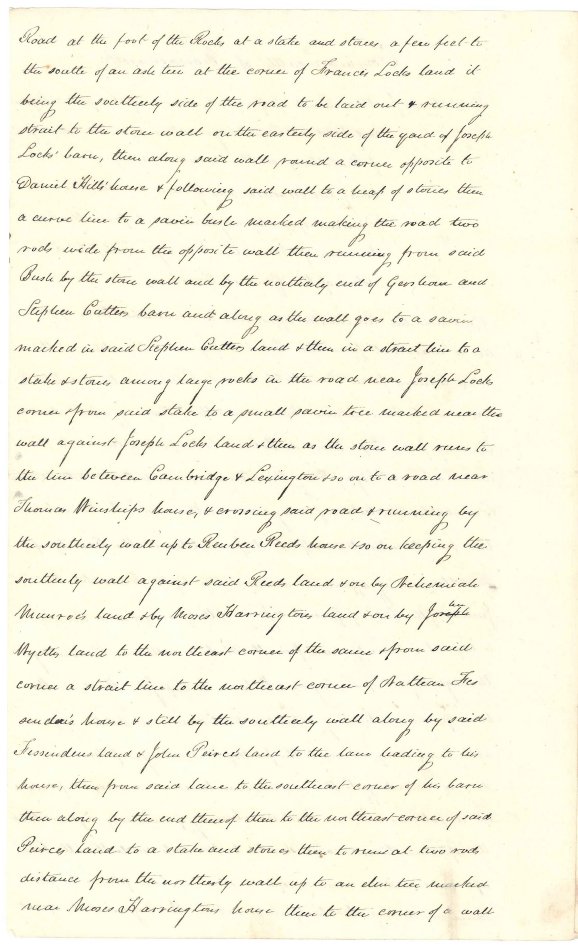 Road at the foot of the Rocks at a stake and stones a few feet to
the south of an ash tree at the corner of Francis Locks land it
being the southerly side of the road to be laid out & running
strait to the stone wall on the easterly side of the yard of Joseph
Locks' barn, then along said wall round a corner opposite to
Daniel Hills' house & following said wall to a heap of stones then
a curve line to a savin bush marked making the road two
rods wide from the opposite wall then running from said
Bush by the stone wall and by the northerly end of Gershom and
Stephen Cutters barn and along as the wall goes to a savin
marked in said Stephen Cutters land & then in a strait line to a
stake & stones among large rocks in the road near Joseph Locks
corner & from said stake to a small savin tree marked near the
wall against Joseph Locks land & then as the stone wall runs to
the line between Cambridge & Lexington & so on to a road near
Thomas Winships house, & crossing said road & running by
the southerly wall up to Reuben Reeds house & so on keeping the
southerly wall against said Reeds land & on by Nehemiah
Munroe's land & by Moses Harringtons land & on by Joseph
Wyeths land to the northeast corner of the same & from said
corner a strait line to the northeast corner of Nathan Fes
senden's house & still by the southerly wall along by said
Fessendens land & John Peirce's land to the lane leading to his
house, then from said lane to the southeast corner of his barn
then along by the end thereof then to the northeast corner of said
Peirces land to a stake and stones then to run at two rods
distance from the northerly wall up to an elm tree marked
near Moses Harringtons house then to the corner of a wall